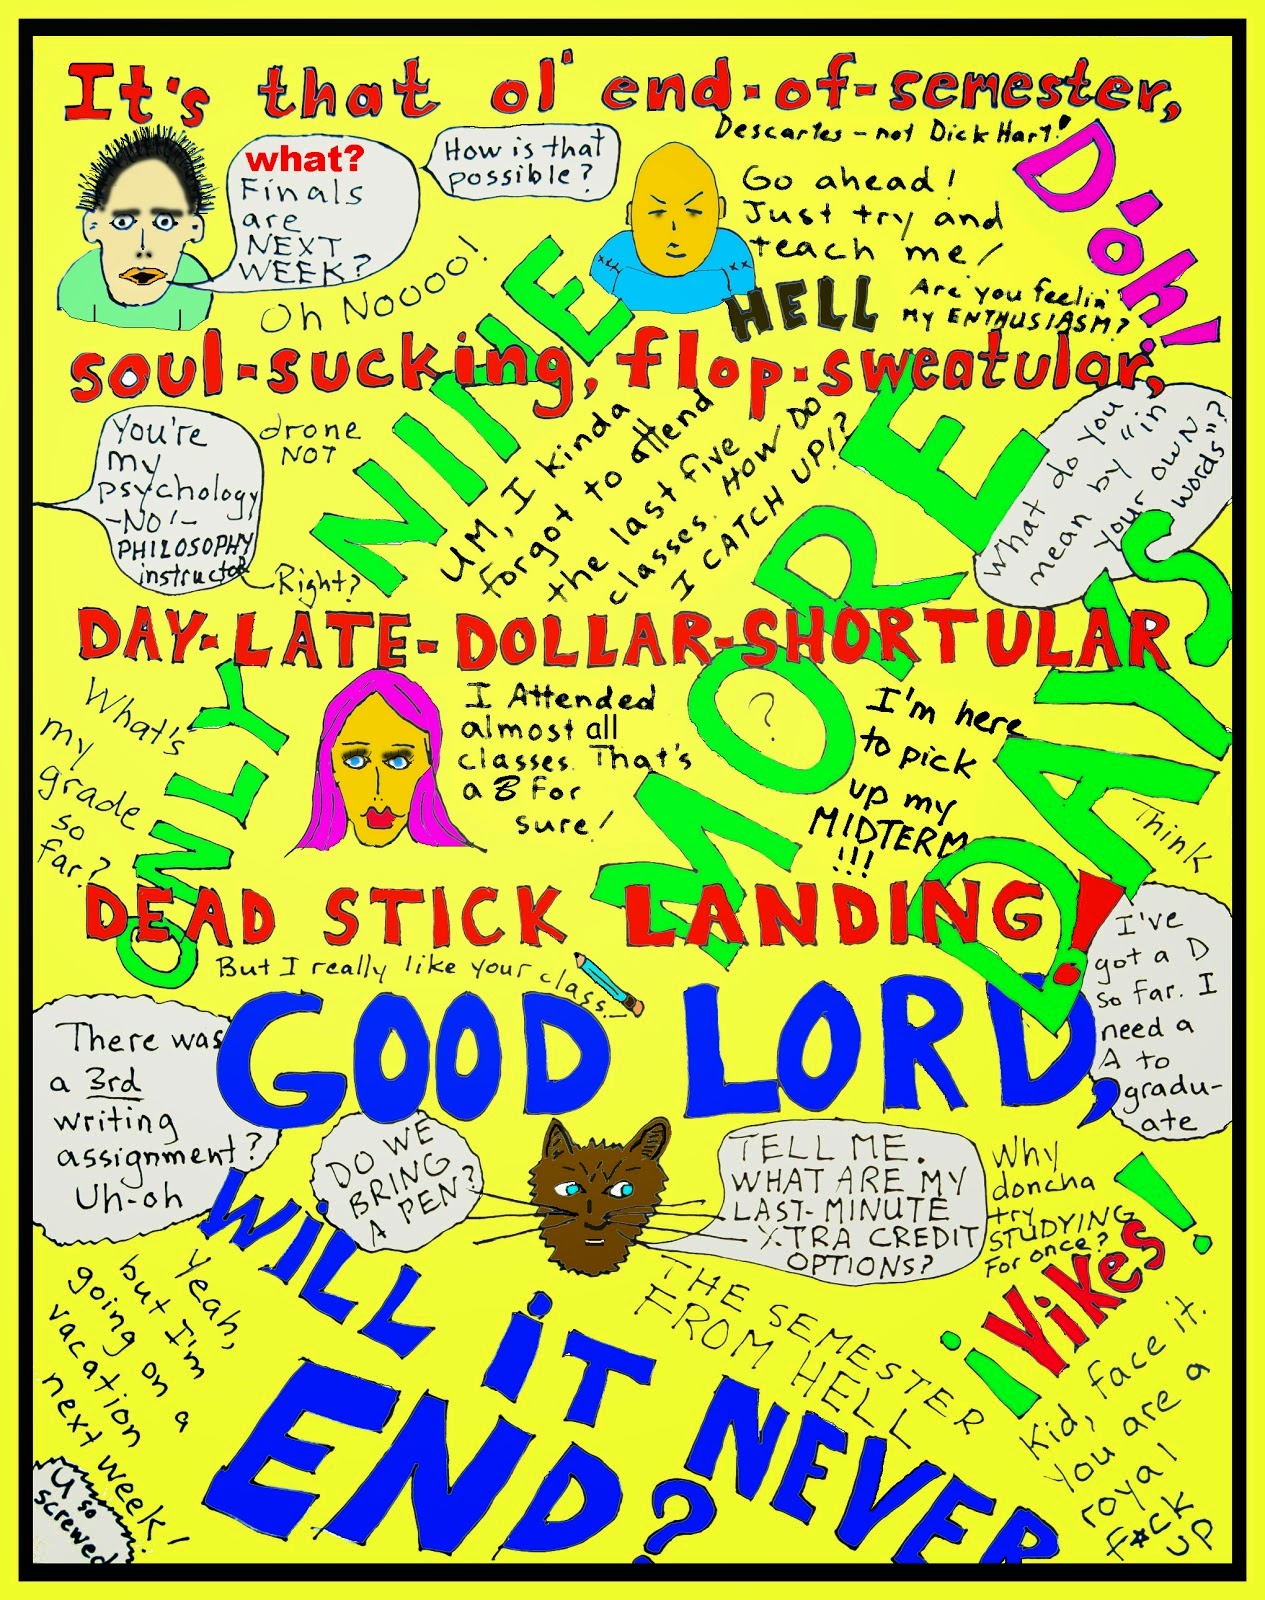 It's that ol' end-of-semester,
Descartes - not Dick Hart!
D'oh!
what?
Finals
are
NEXT
WEEK?
How is that
possible?
Oh Noooo!
Go ahead!
Just try and
teach me!
HELL
Are you feelin'
my ENTHUSIASM?
soul-sucking, flop-sweatular,
You're
my
psychology
-NO!-
PHILOSOPHY
instructor
Right?
drone
NOT
UM, I kinda
forgot to attend
the last five
classes. HOW DO
I CATCH UP!?
What do you
mean by "in
your own
words"?
ONLY
NINE
MORE
DAYS
DAY-LATE-DOLLAR-SHORTULAR
What's
my
grade
so
far?
I Attended
almost all
classes. That's
a B for
sure!
?
I'm here
to pick
up my
MIDTERM
!!!
Think
DEAD STICK LANDING!
But I really like your class!
I've
got a D
so far. I
need a
A to
gradu-
ate
GOOD LORD,
There was
a 3rd
writing
assignment?
Uh-oh
DO WE
BRING
A PEN?
TELL ME.
WHAT ARE MY
LAST-MINUTE
XTRA CREDIT
OPTIONS?
Why
doncha
try
STUDYING
For once?
¡Vikes!
WILL iT
NEVER
END?
THE SEMESTER
FROM HELL
Yeah,
but I'm
going on a
vacation
next week!
U so
screwed
Kid, face it.
You are a
royal
f*ck
up